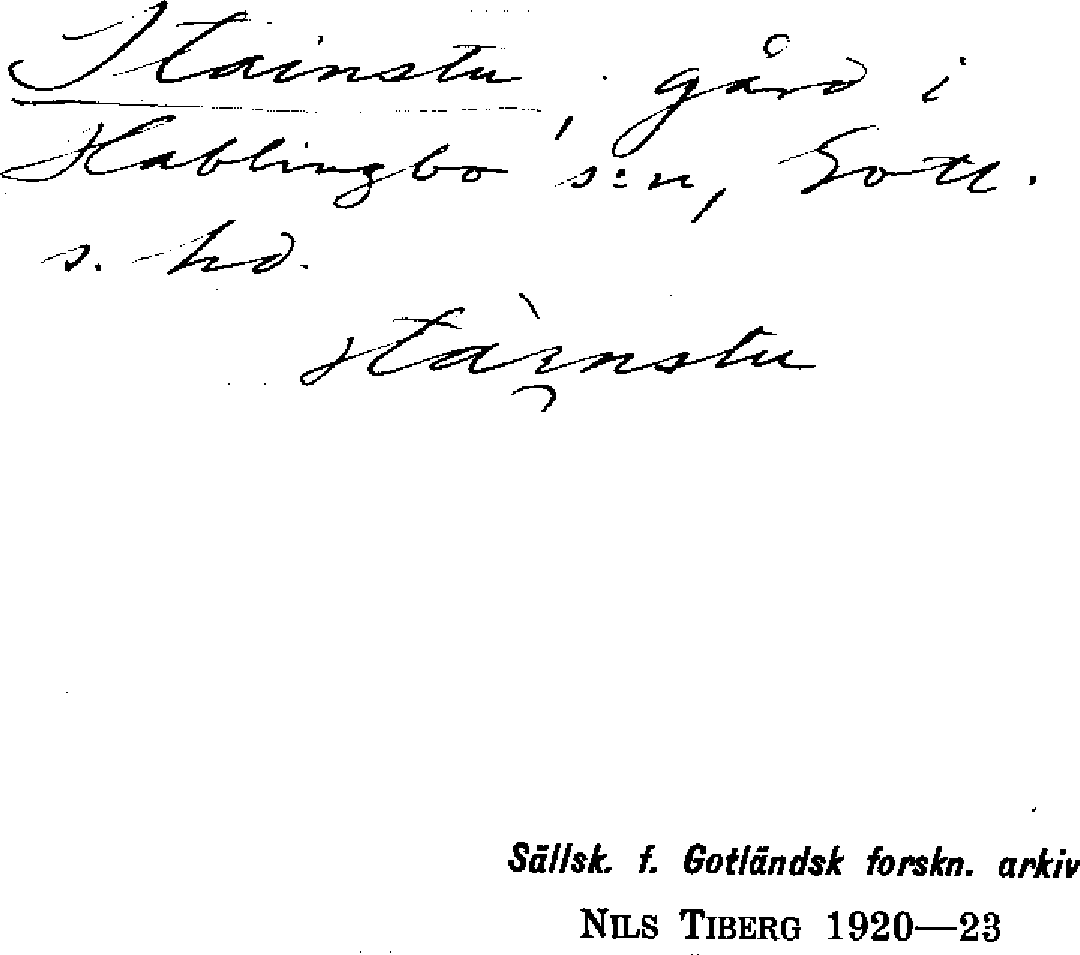 Stainstu, gård i
Hablingbo s:n, Gotl.
s. hd.
stài̯nstu
Sällsk. f. Gotländsk forskn. arkiv
NILS TIBERG 1920—23